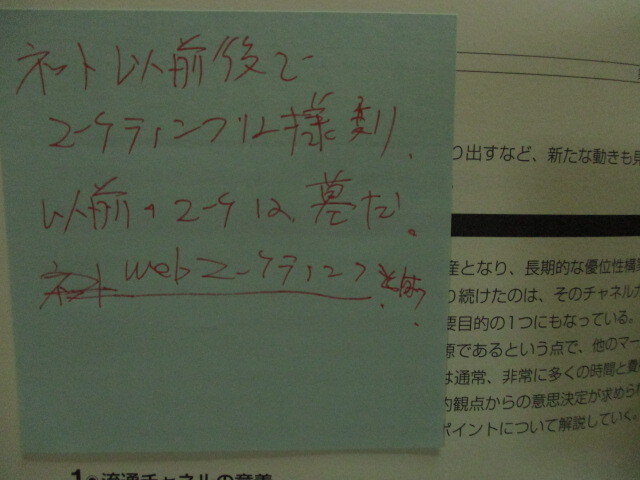 ネット以前/後で
マーケティングは様変り。
以前のマーケは墓だ。
webマーケティング
り出すなど、新たな動きも見
産となり、長期的な優位性構築
り続けたのは、そのチャネルカ
要目的の1つにもなっている。
源であるという点で、他のマー
は通常、非常に多くの時間と費
的観点からの意思決定が求められ
ポイントについて解説していく。
1 流通チャネルの意義